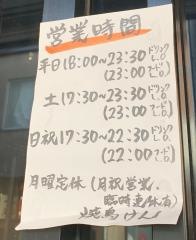 営業時間
平日18:00～23:30 ドリンクL.O.
(23:00 フードL.O.)
土17:30～23:30 ドリンクL.O.
(23:00 フードL.O.)
日祝17:30～22:30 ドリンクL.O.
(22:00 フードL.O.)
月曜定休(月祝営業、
臨時連休有)
焼鳥けん